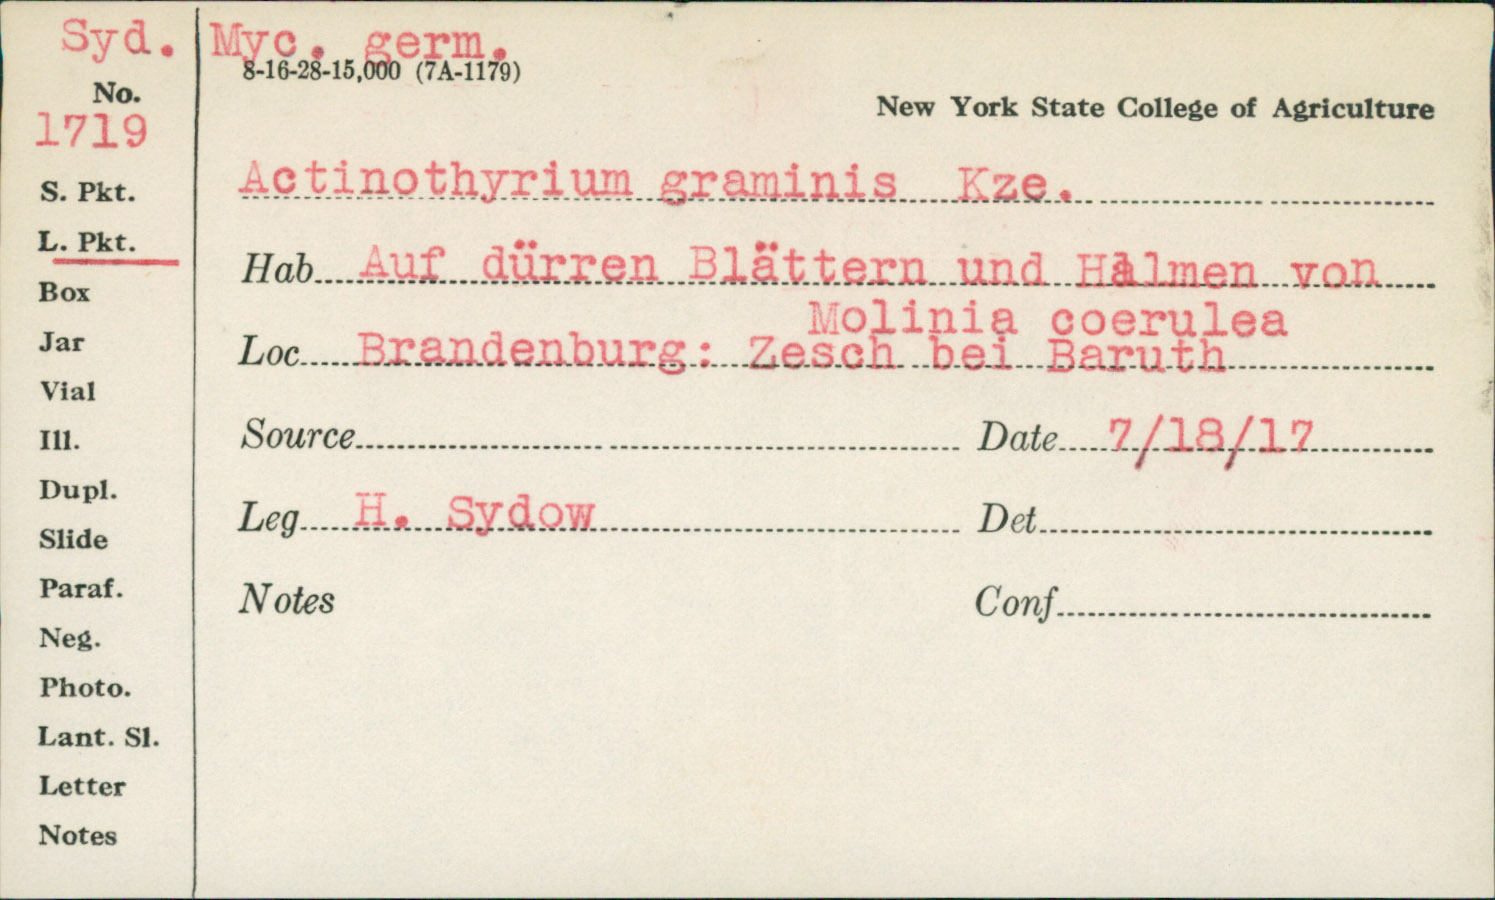 Syd. Myc. germ.
8-16-28-15,000 (7A-1179)
No.
1719
New York State College of Agriculture
S. Pkt.
Actinothyrium graminis Kze.
L. Pkt.
Hab Auf dürren Blättern und Halmen von
Molinia coerulea
Box
Jar
Loc Brandenburg: Zesch bei Baruth
Vial
Ill.
Source Date 7/18/17
Dupl.
Slide
Leg H. Sydow Det
Paraf.
Notes Conf
Neg.
Photo.
Lant. Sl.
Letter
Notes